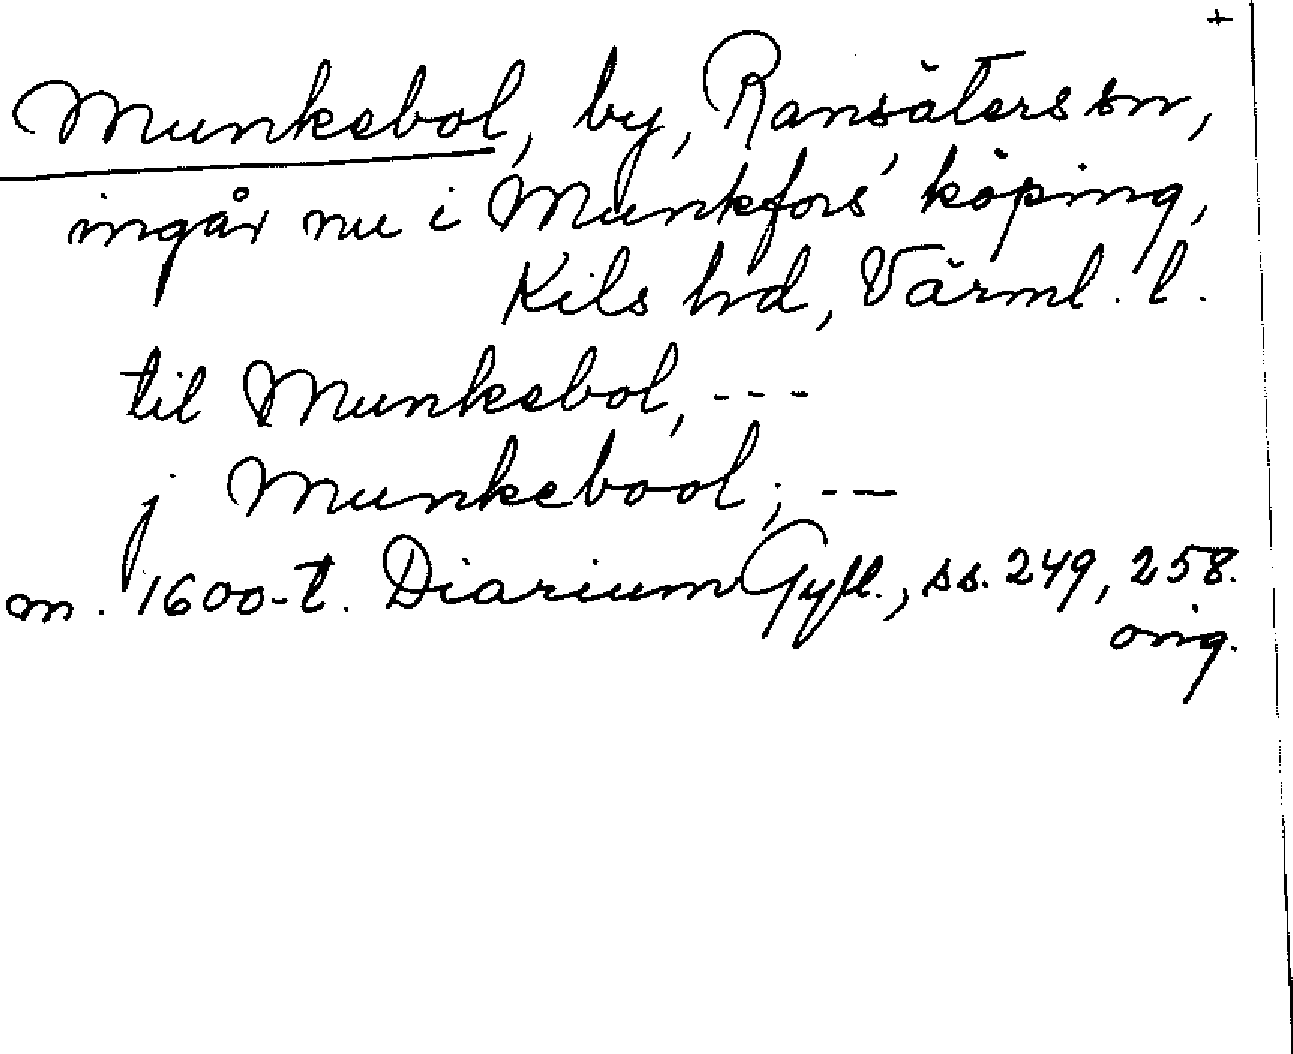 +
Munkebol, by, Ransäters sn,
ingår nu i Munkfors' köping,
Kils hd, Värml. l.
til Munkebol, ---
j Munkebool; ---
m. 1600-t. Diarium Gyll., ss. 249, 258.
orig.